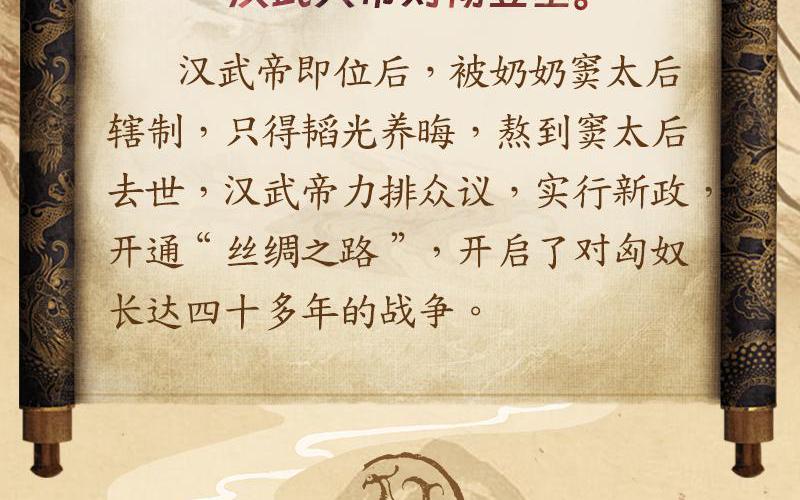 汉武帝即位后，被奶奶窦太后
辖制，只得韬光养晦，熬到窦太后
去世，汉武帝力排众议，实行新政，
开通“丝绸之路”，开启了对匈奴
长达四十多年的战争。